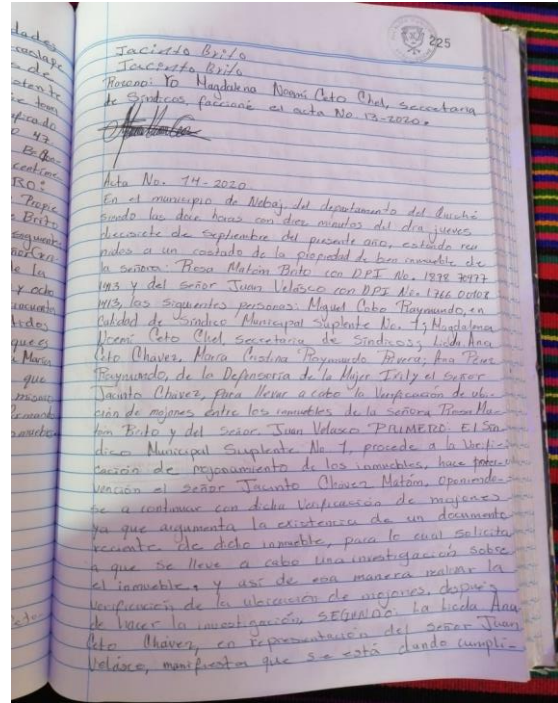 225
Jacinto Brito
Jacinto Brito
Rosono: Yo Magdalena Noemí Ceto Chel, secretaria
de Síndicos, faccioné el acta No. 13-2020.
Acta No. 14-2020
En el municipio de Nebaj del departamento del Quiché
siendo las doce horas con diez minutos del día jueves
diecisiete de Septiembre del presente año, estando reu
nidos a un costado de la propiedad de bien inmueble de
la señora: Rosa Matóm Brito con DPI No. 1878 70977
1413 y del señor Juan Velásco con DPI No. 1766 00108
1413, las siguientes personas: Miguel Cobo Raymundo, en
Calidad de Síndico Municipal Suplente No. 1; Magdalena
Noemí Ceto Chel, Secretaria de Síndicos; Licda. Ana
Ceto Chávez, María Cristina Raymundo Rivera; Ana Pérez
Raymundo, de la Defensoría de la Mujer Ixil y el Señor
Jacinto Chávez, Para llevar a cabo la Verificación de ubi-
ción de mojones entre los inmuebles de la señora Rosa Ma-
tóm Brito y del señor. Juan Velasco PRIMERO: El Sín-
dico Municipal Suplente No. 1, procede a la Verifi-
cación de mojonamiento de los inmuebles, hace inter-
vención el señor Jacinto Chávez Matóm, oponiendo-
se a continuar con dicha Verificación de mojones
ya que argumenta la existencia de un documento
reciente de dicho inmueble, para lo cual solicita
a que se lleve a cabo una investigación sobre
el inmueble, y así de esa manera realizar la
verificación de la ubicación de mojones, después
de hacer la investigación, SEGUNDO: La licda Ana
Ceto Chávez, en representación del señor Juan
Velásco, manifiesta que se está dando cumpli-